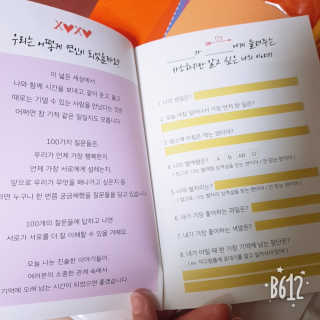 X♥X♥
우리는 어떻게 연인이 되었을까요?
이 넓은 세상에서
나와 함께 시간을 보내고, 같이 웃고 울고
때로는 기댈 수 있는 사람을 만났다는 것은
어쩌면 참 기적 같은 일일지도 모릅니다.
100가지 질문들은,
우리가 언제 가장 행복한지,
언제 가장 서로에게 설레는지,
앞으로 우리가 무엇을 해나가고 싶은지 등
하면 누구나 한 번쯤 궁금해했을 질문들을 담고 있습니다.
100개의 질문들에 답하고 나면
서로가 서로를 더 잘 이해할 수 있을 거예요.
오늘 나눈 진솔한 이야기들이,
여러분의 소중한 관계 속에서
기억에 오래 남는 시간이 되었으면 좋겠습니다.
가 에게 들려주는
1. 나의 생일은?
2. 오늘 아침 일어나서 가장 먼저 한 일은?
3. 평소에 아침은 먹는 편이야?
4. 나의 혈액형은? A B AB O
5. 나의 별자리는?
6. 내가 가장 좋아하는 과일은?
7. 내가 가장 좋아하는 색깔은?
8. 내가 어릴 때 한 가장 기억에 남는 장난은?
B612